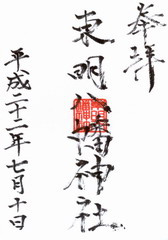 奉拝
東明八幡神社
平成二十二年七月十日